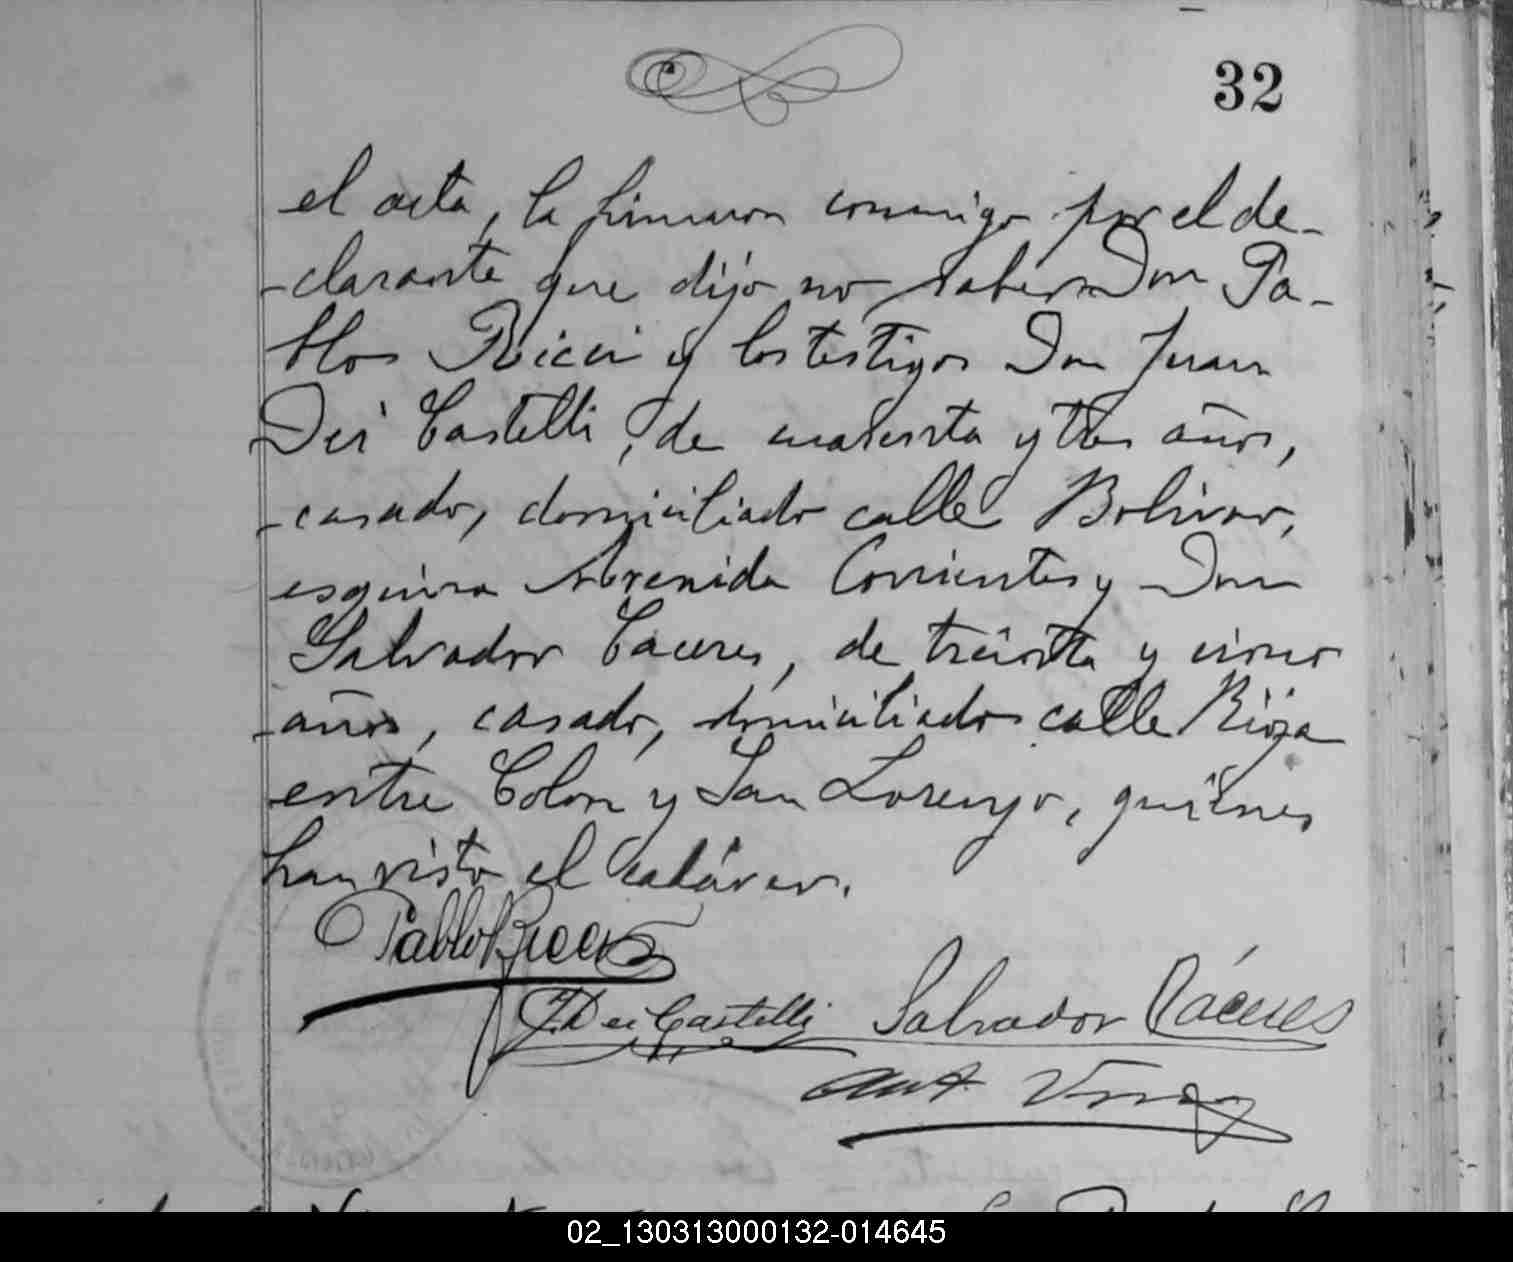 32
el acta, la firmaron conmigo por el de-
-clarante que dijo no saber Don Pa-
blo Ricci y los testigos Don Juan
Dei Castelli, de cuarenta y tres años,
-casado, domiciliado calle Bolivar,
esquina Avenida Corrientes y Don
Salvador Caceres, de treinta y cinco
-años, casado, domiciliado calle Rioja
entre Colon y San Lorenzo, quienes
han visto el cadáver.
Pablo Ricci
J. Dei Castelli Salvador Cáceres
Ant
02_130313000132-014645